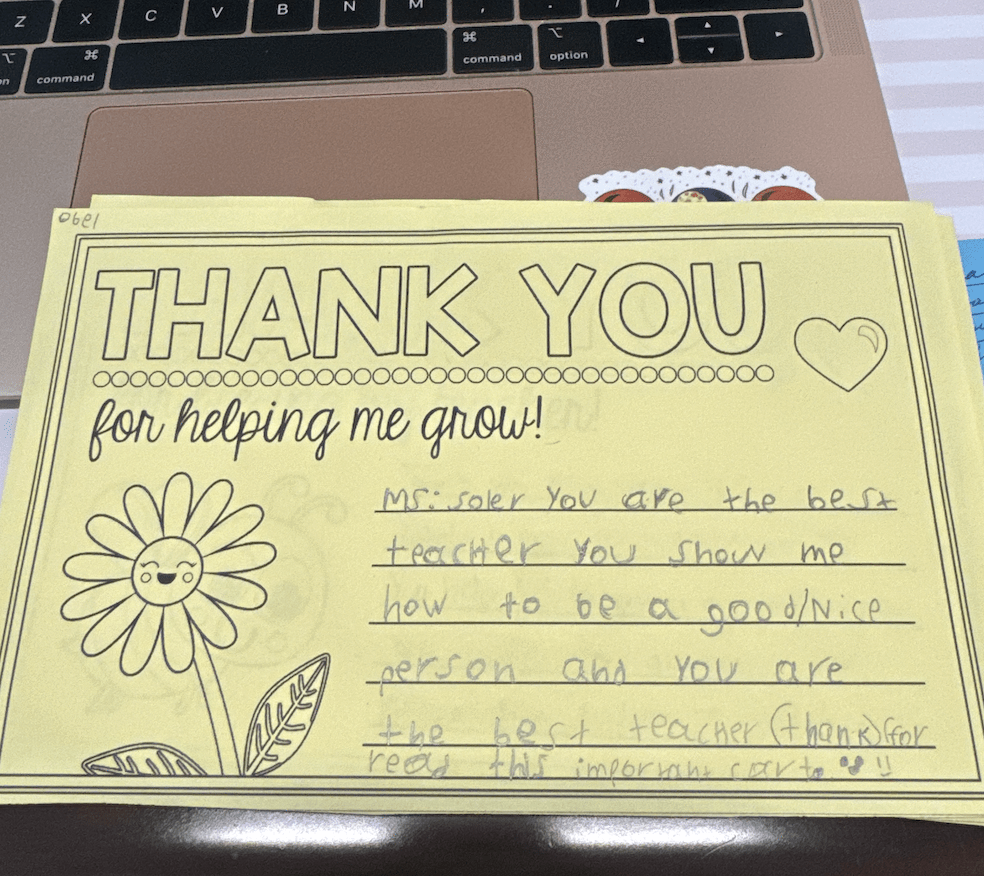 Z X C V B N M , . /
⌥ ⌘ ⌘ ⌥ ▲
on command command option ◄ ▼ ►
Obel
THANK YOU
for helping me grow!
MS: soler You are the best
teacHer You show me
how to be a good/Nice
person and You are
the best teacHer (thank) for
read this important carta